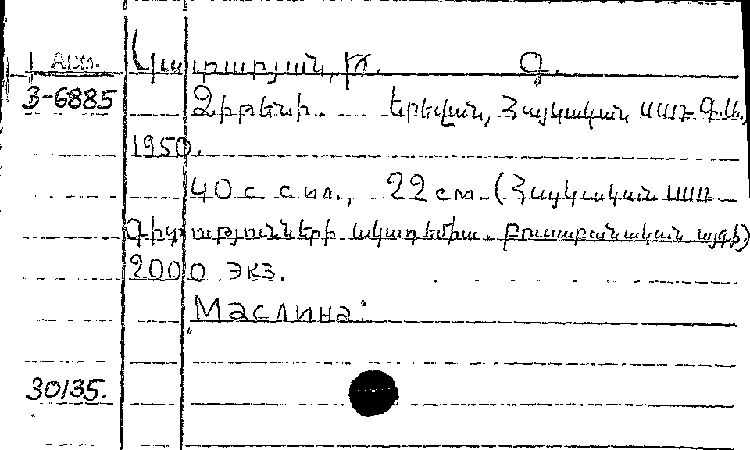 Арм. Կատարյան, Թ. Գ.
З-6885 Ձիթենի. Երեվան, Հայկական ՍՍՌ Գ.Ա.,
1950.
40 с с ил., 22 см. (Հայկական ՍՍՌ
Գիտությունների ակադեմիա. Բուսաբանական այգի)
2000 экз.
Маслина.
30135.